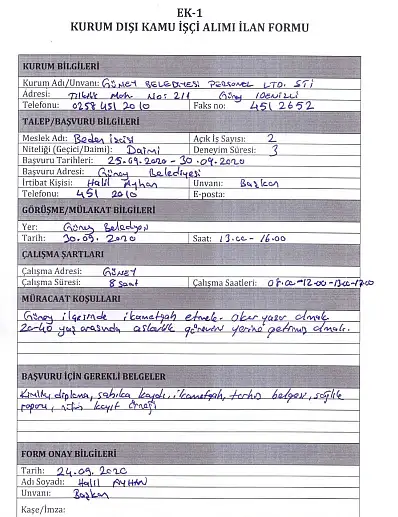 EK-1
KURUM DIŞI KAMU İŞÇİ ALIMI İLAN FORMU
KURUM BİLGİLERİ
Kurum Adı/Unvanı: GÜNEY BELEDİYESİ PERSONEL LTD. ŞTİ
Adresi: Mah. No: 2/1 Güney / DENİZLİ
Telefonu: 0258 451 20 10 Faks no: 451 2652
TALEP/BAŞVURU BİLGİLERİ
Meslek Adı: Beden İşçisi Açık İş Sayısı: 2
Niteliği (Geçici/Daimi): Daimi Deneyim Süresi: 3
Başvuru Tarihleri: 25.09.2020 - 30.09.2020
Başvuru Adresi: Güney Belediyesi
İrtibat Kişisi: Halil Ayhan Unvanı: Başkan
Telefonu: 451 2010 E-posta:
GÖRÜŞME/MÜLAKAT BİLGİLERİ
Yer: Güney Belediyesi
Tarih: 30.09.2020 Saat: 13.00 - 16.00
ÇALIŞMA ŞARTLARI
Çalışma Adresi: GÜNEY
Çalışma Süresi: 8 saat Çalışma Saatleri: 08.00-12.00-13.00-17.00
MÜRACAAT KOŞULLARI
Güney ilçesinde ikametgah etmek. Okur yazar olmak
20-40 yaş arasında askerlik görevini yerine getirmiş olmalı.
BAŞVURU İÇİN GEREKLİ BELGELER
Kimlik, diploma, sabıka kaydı, ikametgah, terhis belgesi, sağlık
raporu, nüfus kayıt örneği
FORM ONAY BİLGİLERİ
Tarih: 24.09.2020
Adı Soyadı: Halil AYHAN
Unvanı: Başkan
Kaşe/İmza: